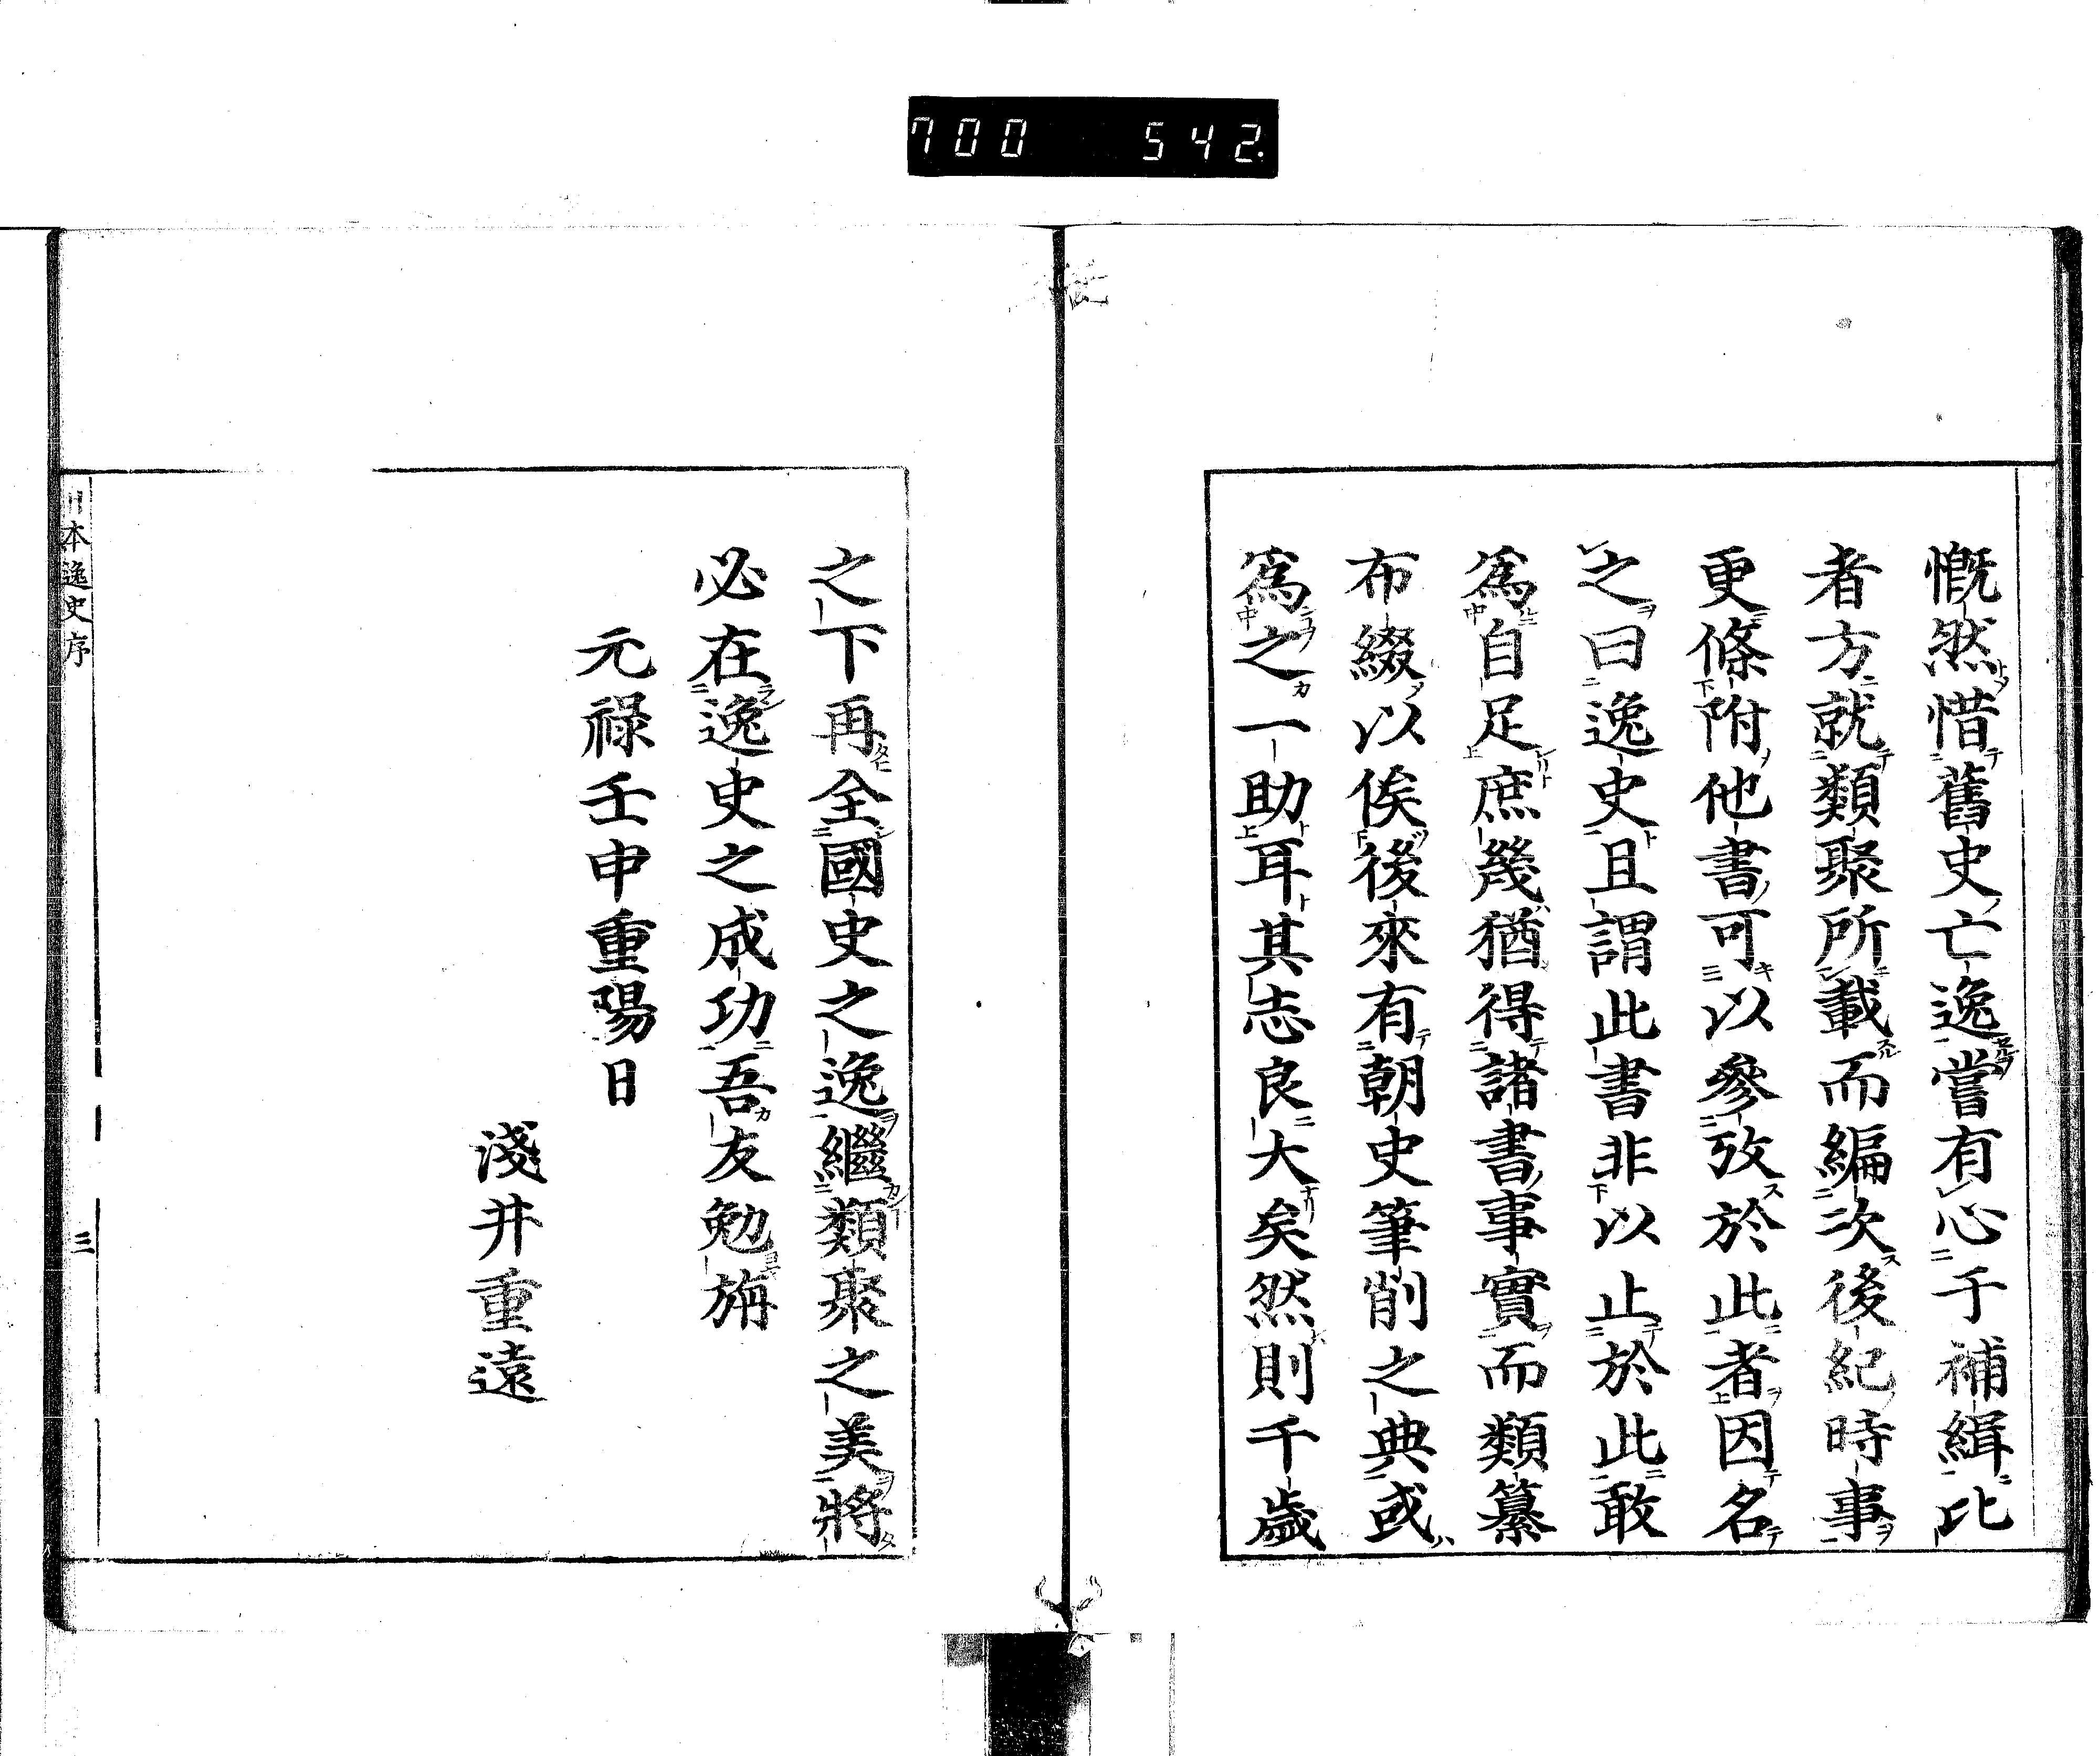 700 542.
慨然惜舊史亡逸嘗有心于補緝比
者方就類聚所載而編次後紀時事
更條附他書可以參攷於此者因名
之曰逸史且謂此書非以止於此敢
爲自足庶幾猶得諸書事實而類纂
布綴以俟後來有朝史筆削之典或
爲之一助耳其志良大矣然則千歲
之下再全國史之逸繼類聚之美將
必在逸史之成功吾友勉旃
元祿壬申重陽日
淺井重遠
日本逸史序
三